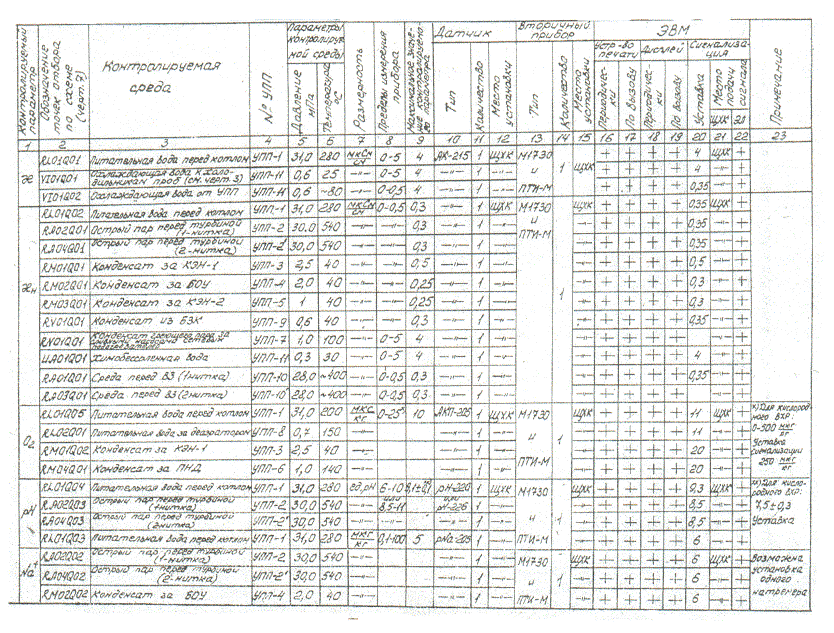 Контролируемый параметр | Обозначение точек отбора по схеме (черт. 7) | Контролируемая среда | № УПП | Параметры контролируемой среды: Давление мПа | Температура °С | Размерность | Пределы измерения прибора | Максимальное значение | Датчик: Тип | Количество | Место установки | Вторичный прибор: Тип | Количество | Место установки | ЭВМ: Устр-во печати: Периодически | По вызову | Дисплей: Периодически | По вызову | Сигнализация: Уставка | Место подачи сигнала: ЩХК | ЭЛ | Примечание
1 | 2 | 3 | 4 | 5 | 6 | 7 | 8 | 9 | 10 | 11 | 12 | 13 | 14 | 15 | 16 | 17 | 18 | 19 | 20 | 21 | 22 | 23
æ | RL01Q01 | Питательная вода перед котлом | УПП-1 | 31,0 | 280 | мкСм см | 0-5 | 4 | АК-215 | 1 | ЩХК | М1730 и ПТИ-М | 1 | ЩХК | + | + | + | + | 4 | ЩХК | +
VI01Q01 | Охлаждающая вода к холодильникам проб (см. черт. 3) | УПП-11 | 0,6 | 25 | -"- | 0-5 | 4 | -"- | 1 | -"- | + | + | + | + | 4 | -"- | +
VI01Q01 | Охлаждающая вода от УПП | УПП-11 | 0,6 | ~80 | -"- | 0-0,5 | 4 | -"- | 1 | -"- | + | + | + | + | 0,35 | -"- | +
æн | RL01Q02 | Питательная вода перед котлом | УПП-1 | 31,0 | 280 | мкСм см | 0-0,5 | 0,3 | -"- | 1 | ЩХК | М1730 и ПТИ-М | 1 | ЩХК | + | + | + | + | 0,35 | ЩХК | +
RA02Q01 | Острый пар перед турбиной (1-нитка) | УПП-2 | 30,0 | 540 | -"- | -"- | 0,3 | -"- | 1 | -"- | + | + | + | + | 0,35 | -"- | +
RA04Q01 | Острый пар перед турбиной (2-нитка) | УПП-2' | 30,0 | 540 | -"- | -"- | 0,3 | -"- | 1 | -"- | + | + | + | + | 0,35 | -"- | +
RM01Q01 | Конденсат за КЭН-1 | УПП-3 | 2,5 | 40 | -"- | -"- | 0,5 | -"- | 1 | -"- | + | + | + | + | 0,5 | -"- | +
RM02Q01 | Конденсат за БОУ | УПП-4 | 2,0 | 40 | -"- | -"- | 0,25 | -"- | 1 | -"- | + | + | + | + | 0,3 | -"- | +
RM03Q01 | Конденсат за КЭН-2 | УПП-5 | 1 | 40 | -"- | -"- | 0,25 | -"- | 1 | -"- | + | + | + | + | 0,3 | -"- | +
RV01Q01 | Конденсат из БЗК | УПП-9 | 0,6 | 40 | -"- | -"- | 0,3 | -"- | 1 | -"- | + | + | + | + | 0,35 | -"- | +
RN01Q01 | Конденсат греющего пара за | УПП-7 | 1,0 | 100 | -"- | 0-5 | 4 | -"- | 1 | -"- | + | + | + | +
UA01Q01 | Химобессоленная вода | УПП-11 | 0,3 | 30 | -"- | 0-5 | 4 | -"- | 1 | -"- | + | + | + | + | 4 | -"- | +
RA01Q01 | Среда перед ВЗ (1нитка) | УПП-10 | 28,0 | ~400 | -"- | 0-0,5 | 0,3 | -"- | 1 | -"- | + | + | + | + | 0,35 | -"- | +
RA03Q01 | Среда перед ВЗ (2нитка) | УПП-10' | 28,0 | ~400 | -"- | 0-0,5 | 0,3 | -"- | 1 | -"- | + | + | + | +
O₂ | RL01Q05 | Питательная вода перед котлом | УПП-1 | 31,0 | 200 | мкг кг | 0-25 | 10 | АКП-205 | 1 | ЩХК | М1730 и ПТИ-М | 1 | ЩХК | + | + | + | + | 11 | ЩХК | + | х) Для кислородного ВХР: 0-500 мкг кг Уставка сигнализации 250 мкг кг
RL02Q01 | Питательная вода за деаэратором | УПП-8 | 0,7 | 150 | -"- | -"- | 1 | -"- | + | + | + | + | 11 | -"- | +
RM01Q02 | Конденсат за КЭН-1 | УПП-3 | 2,5 | 40 | -"- | -"- | 1 | -"- | + | + | + | + | 20 | -"- | +
RM04Q01 | Конденсат за ПНД | УПП-6 | 1,0 | 140 | -"- | -"- | 1 | -"- | + | + | + | + | 20 | -"- | +
pH | RL01Q04 | Питательная вода перед котлом | УПП-1 | 31,0 | 280 | ед.pH | 6-10 или 8,5-11 | 9,1±0,1 | pH-220 или pH-226 | 1 | ЩХК | М1730 и ПТИ-М | 1 | ЩХК | + | + | + | + | 9,3 | ЩХК | + | х) Для кислородного ВХР: 7,5±0,3 Уставка
RA02Q03 | Острый пар перед турбиной (1нитка) | УПП-2 | 30,0 | 540 | 1 | -"- | + | + | + | + | 8,5 | -"- | +
RA04Q03 | Острый пар перед турбиной (2нитка) | УПП-2' | 30,0 | 540 | 1 | -"- | + | + | + | + | 8,5 | -"- | +
RL01Q03 | Питательная вода перед котлом | УПП-1 | 31,0 | 280 | мкг кг | 0,1-100 | 5 | pNa-205 | 1 | -"- | + | + | + | + | 6 | -"- | +
Na⁺ | RA02Q02 | Острый пар перед турбиной (1-нитка) | УПП-2 | 30,0 | 540 | 1 | М1730 и ПТИ-М | 1 | ЩХК | + | + | + | + | 6 | ЩХК | + | Возможна установка одного натремера
RA04Q02 | Острый пар перед турбиной (2-нитка) | УПП-2' | 30,0 | 540 | 1 | -"- | + | + | + | + | 6 | -"- | +
RM02Q02 | Конденсат за БОУ | УПП-4 | 2,0 | 40 | 1 | -"- | + | + | + | + | 6 | -"- | +